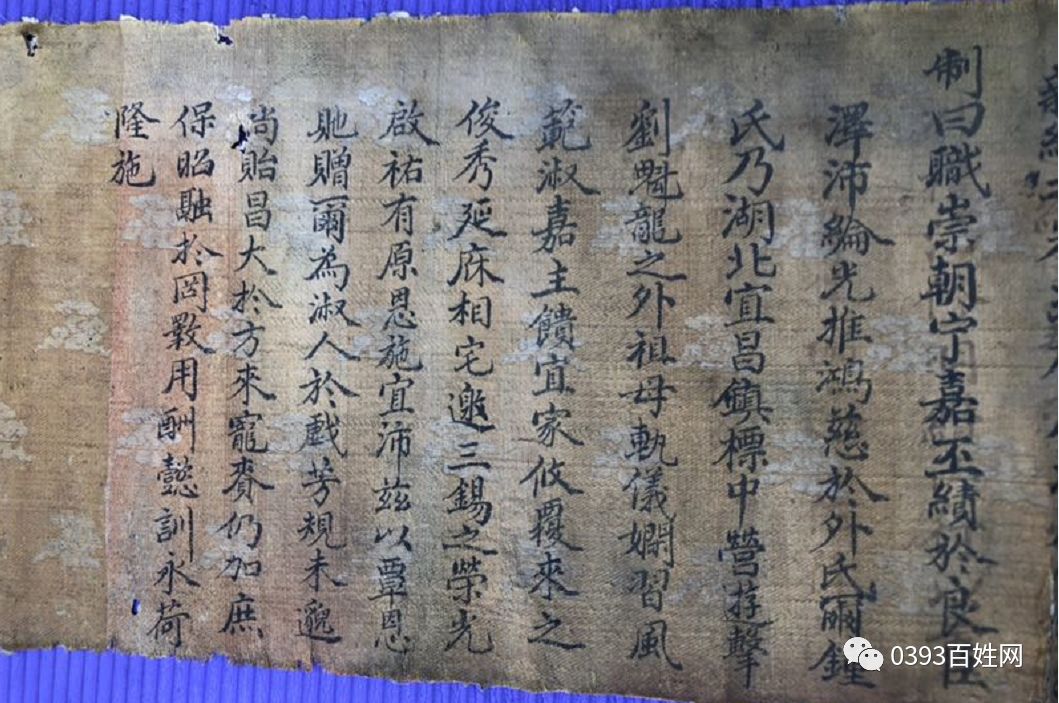 制曰職崇朝宁嘉丕績於良臣
澤沛綸光推鴻慈於外氏爾鍾
氏乃湖北宜昌鎮標中營遊擊
劉魁龍之外祖母軌儀嫻習風
範淑嘉主饋宜家攸覆來之
俊秀延庥相宅邀三錫之榮光
啟祐有原恩施宜沛茲以覃恩
貤贈爾為淑人於戲芳規未邈
尚貽昌大於方來寵賚仍加庶
保昭融於罔斁用酬懿訓永荷
隆施
0393百姓网